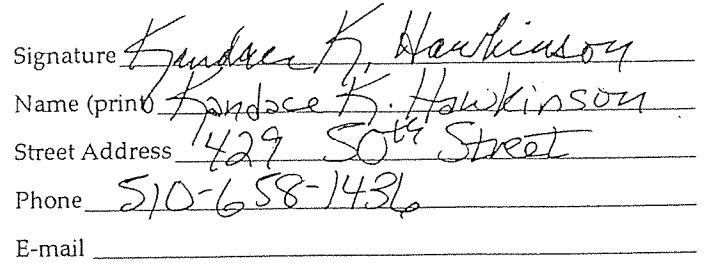 Signature Kandace K. Hawkinson
Name (print) Kandace K. Hawkinson
Street Address 429 50th Street
Phone 510-658-1436
E-mail